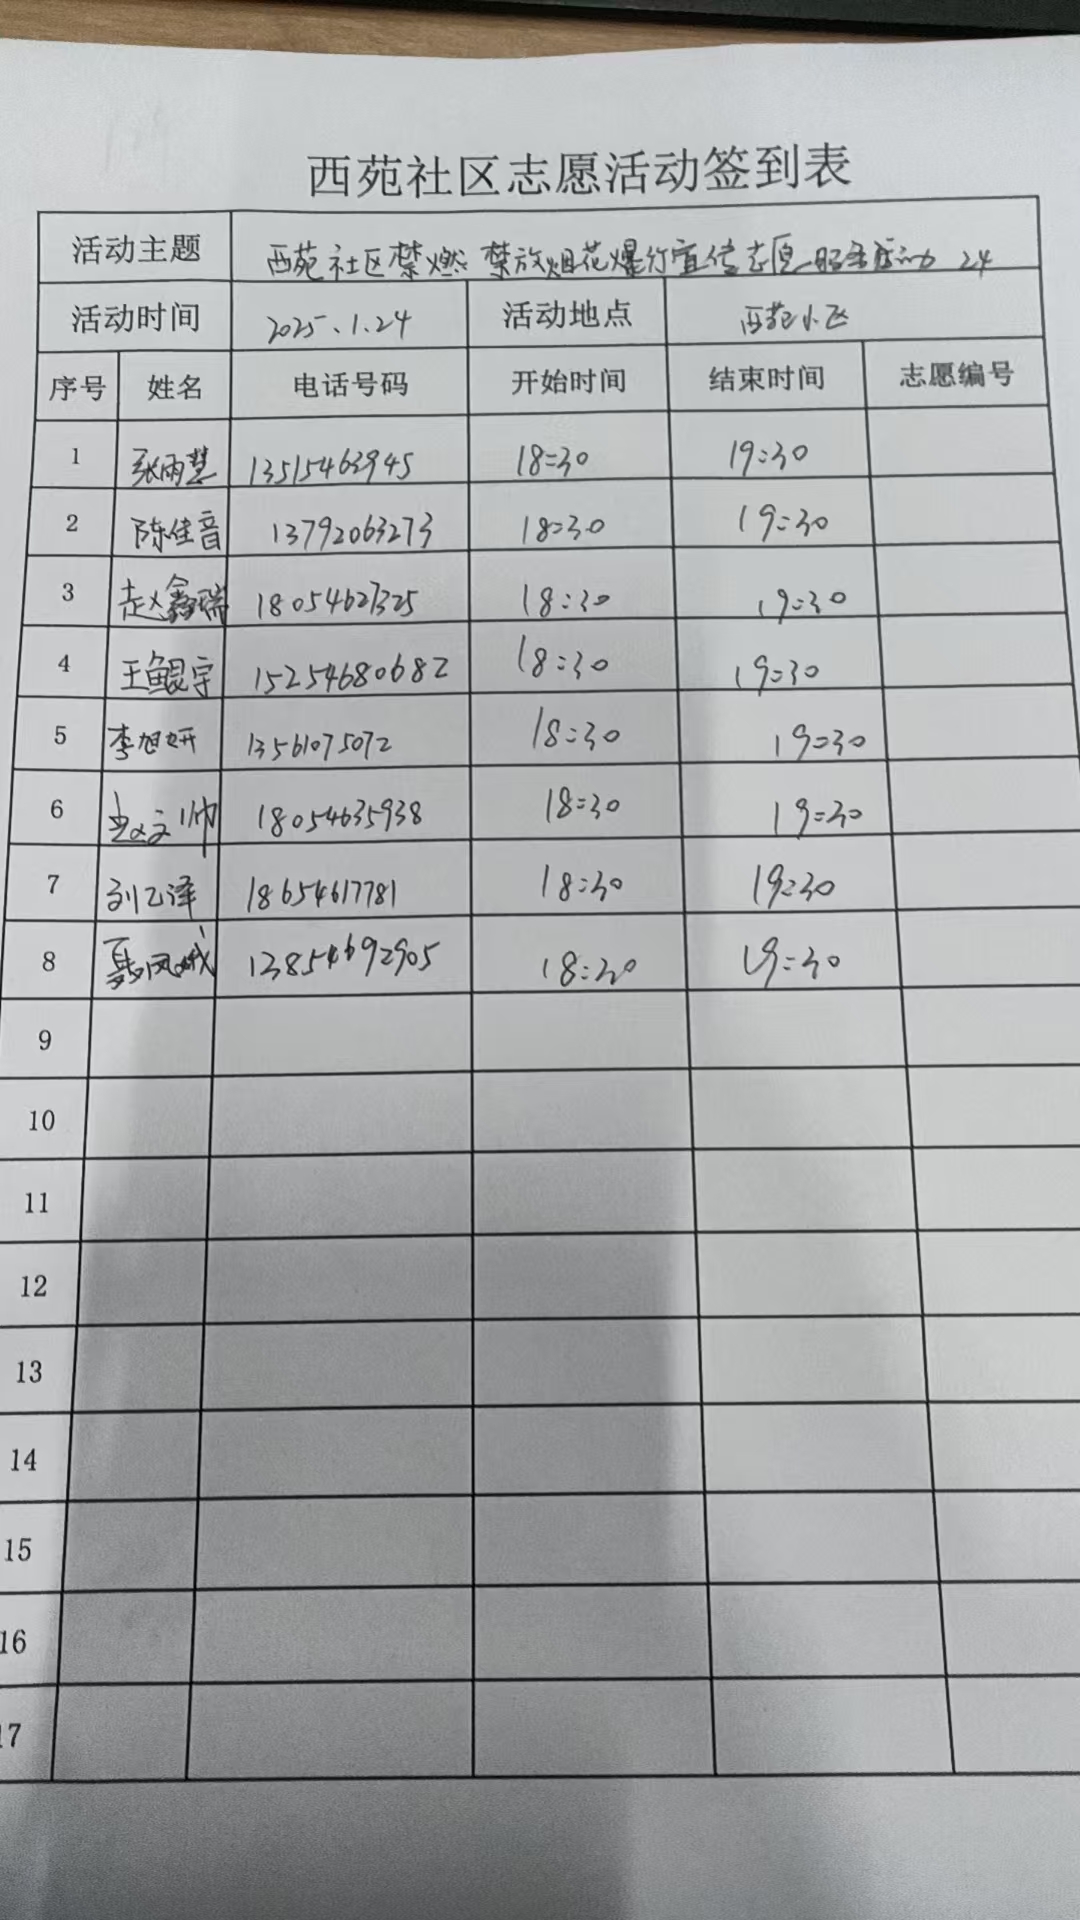 西苑社区志愿活动签到表
活动主题 西苑社区禁燃禁放烟花爆竹宣传志愿服务活动 24
活动时间 2025.1.24 活动地点 西苑小区
序号 姓名 电话号码 开始时间 结束时间 志愿编号
1 张雨慧 13515463945 18:30 19:30
2 陈佳音 13792063273 18:30 19:30
3 赵鑫瑞 18054627325 18:30 19:30
4 王鲲宇 15254680682 18:30 19:30
5 李旭妍 13561075072 18:30 19:30
6 赵文帅 18054635938 18:30 19:30
7 刘乙泽 18654617781 18:30 19:30
8 聂凤娥 13854692905 18:30 19:30
9
10
11
12
13
14
15
16
17